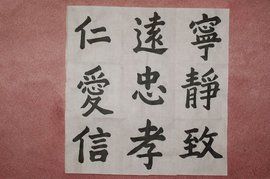 寧靜致
遠忠孝
仁愛信